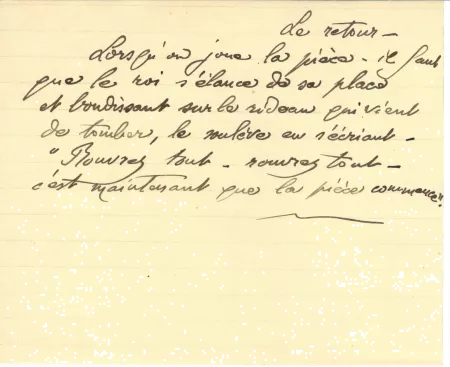 Le retour -
Lorsqu'on joue la pièce - il faut
que le roi s'élance de sa place
et bondissant sur le rideau qui vient
de tomber, le soulève en s'écriant -
"Rouvrez tout - rouvrez tout -
c'est maintenant que la pièce commence".